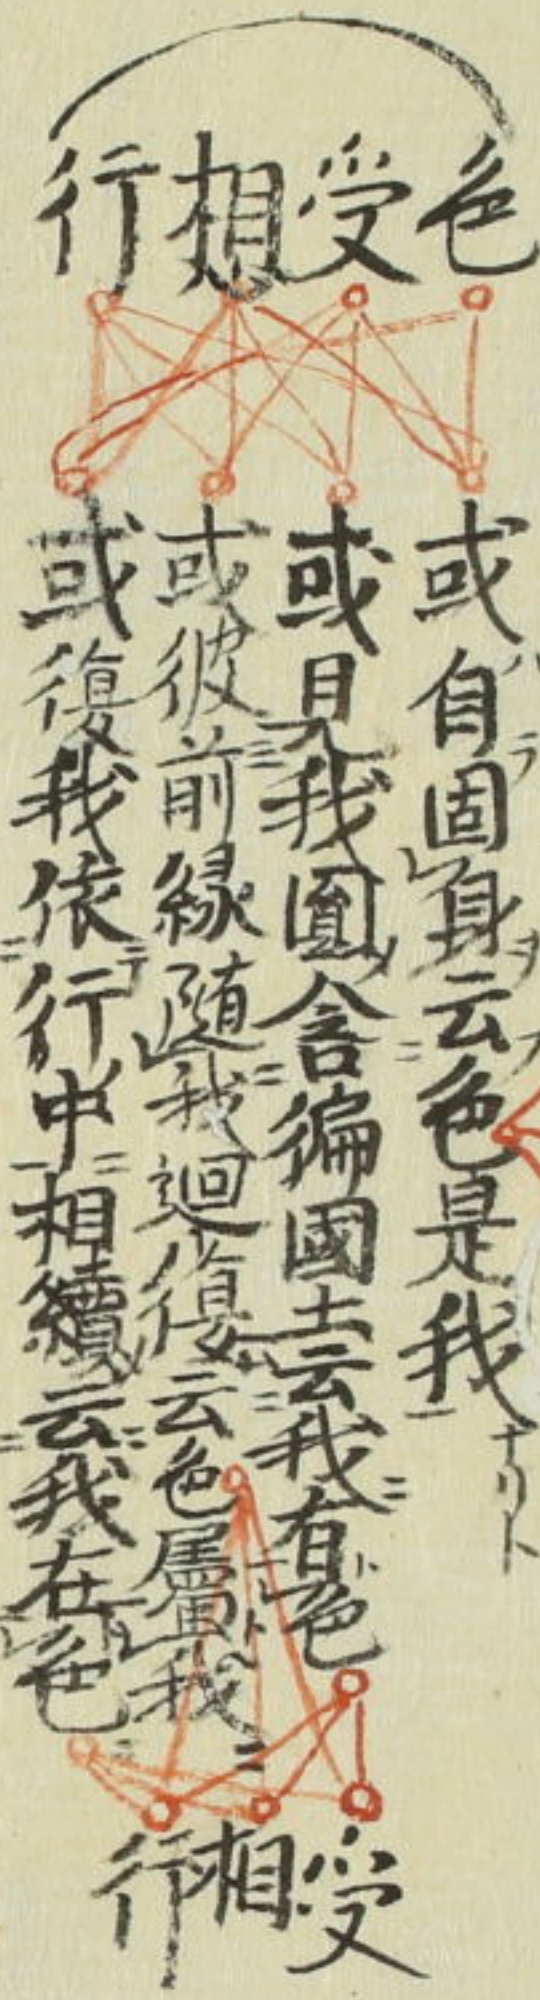 色受想行
或自固身云色是我ナリト
或見我圓含徧國土云我有色
或彼前緣隨我迴復云色屬我
或復我依行中相續云我在色
受想行